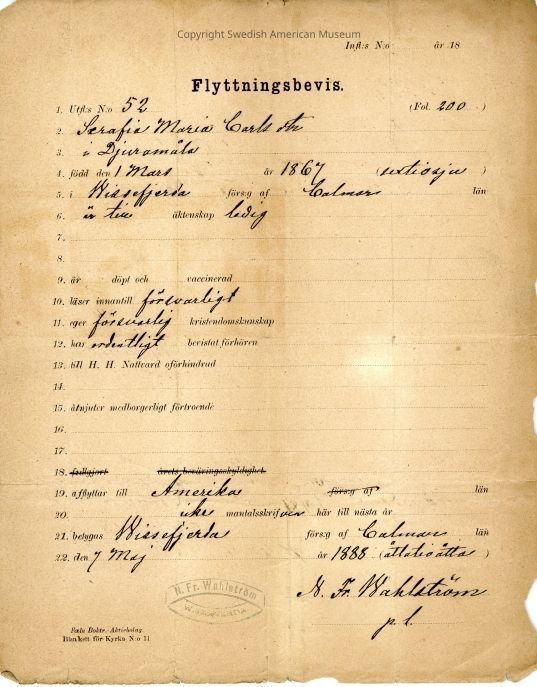 Copyright Swedish American Museum
Infl:s N:o år 18
Flyttningsbevis.
1. Utfl:s N:o 52 (Fol. 200 )
2. Serafia Maria Carls dtr
3. i Djuramåla
4. född den 1 Mars år 1867 (sextiosju )
5. i Wissefjerda förs:g af Calmar län
6. är till äktenskap ledig
7.
8.
9. är döpt och vaccinerad
10. läser innantill försvarligt
11. eger försvarlig kristendomskunskap
12. har ordentligt bevistat förhören
13. till H. H. Nattvard oförhindrad
14.
15. åtnjuter medborgerligt förtroende
16.
17.
18. fullgjort årets beväringsskyldighet
19. afflyttar till Amerika förs:g af län
20. icke mantalsskrifven här till nästa år
21. betygas Wissefjerda förs:g af Calmar län
22. den 7 Maj år 1888 (åttatioåtta )
N. Fr. Wahlström
p. l.
N. Fr. Wahlström
Eksla Boktr.-Aktiebolag
Blankett för Kyrka N:o 11